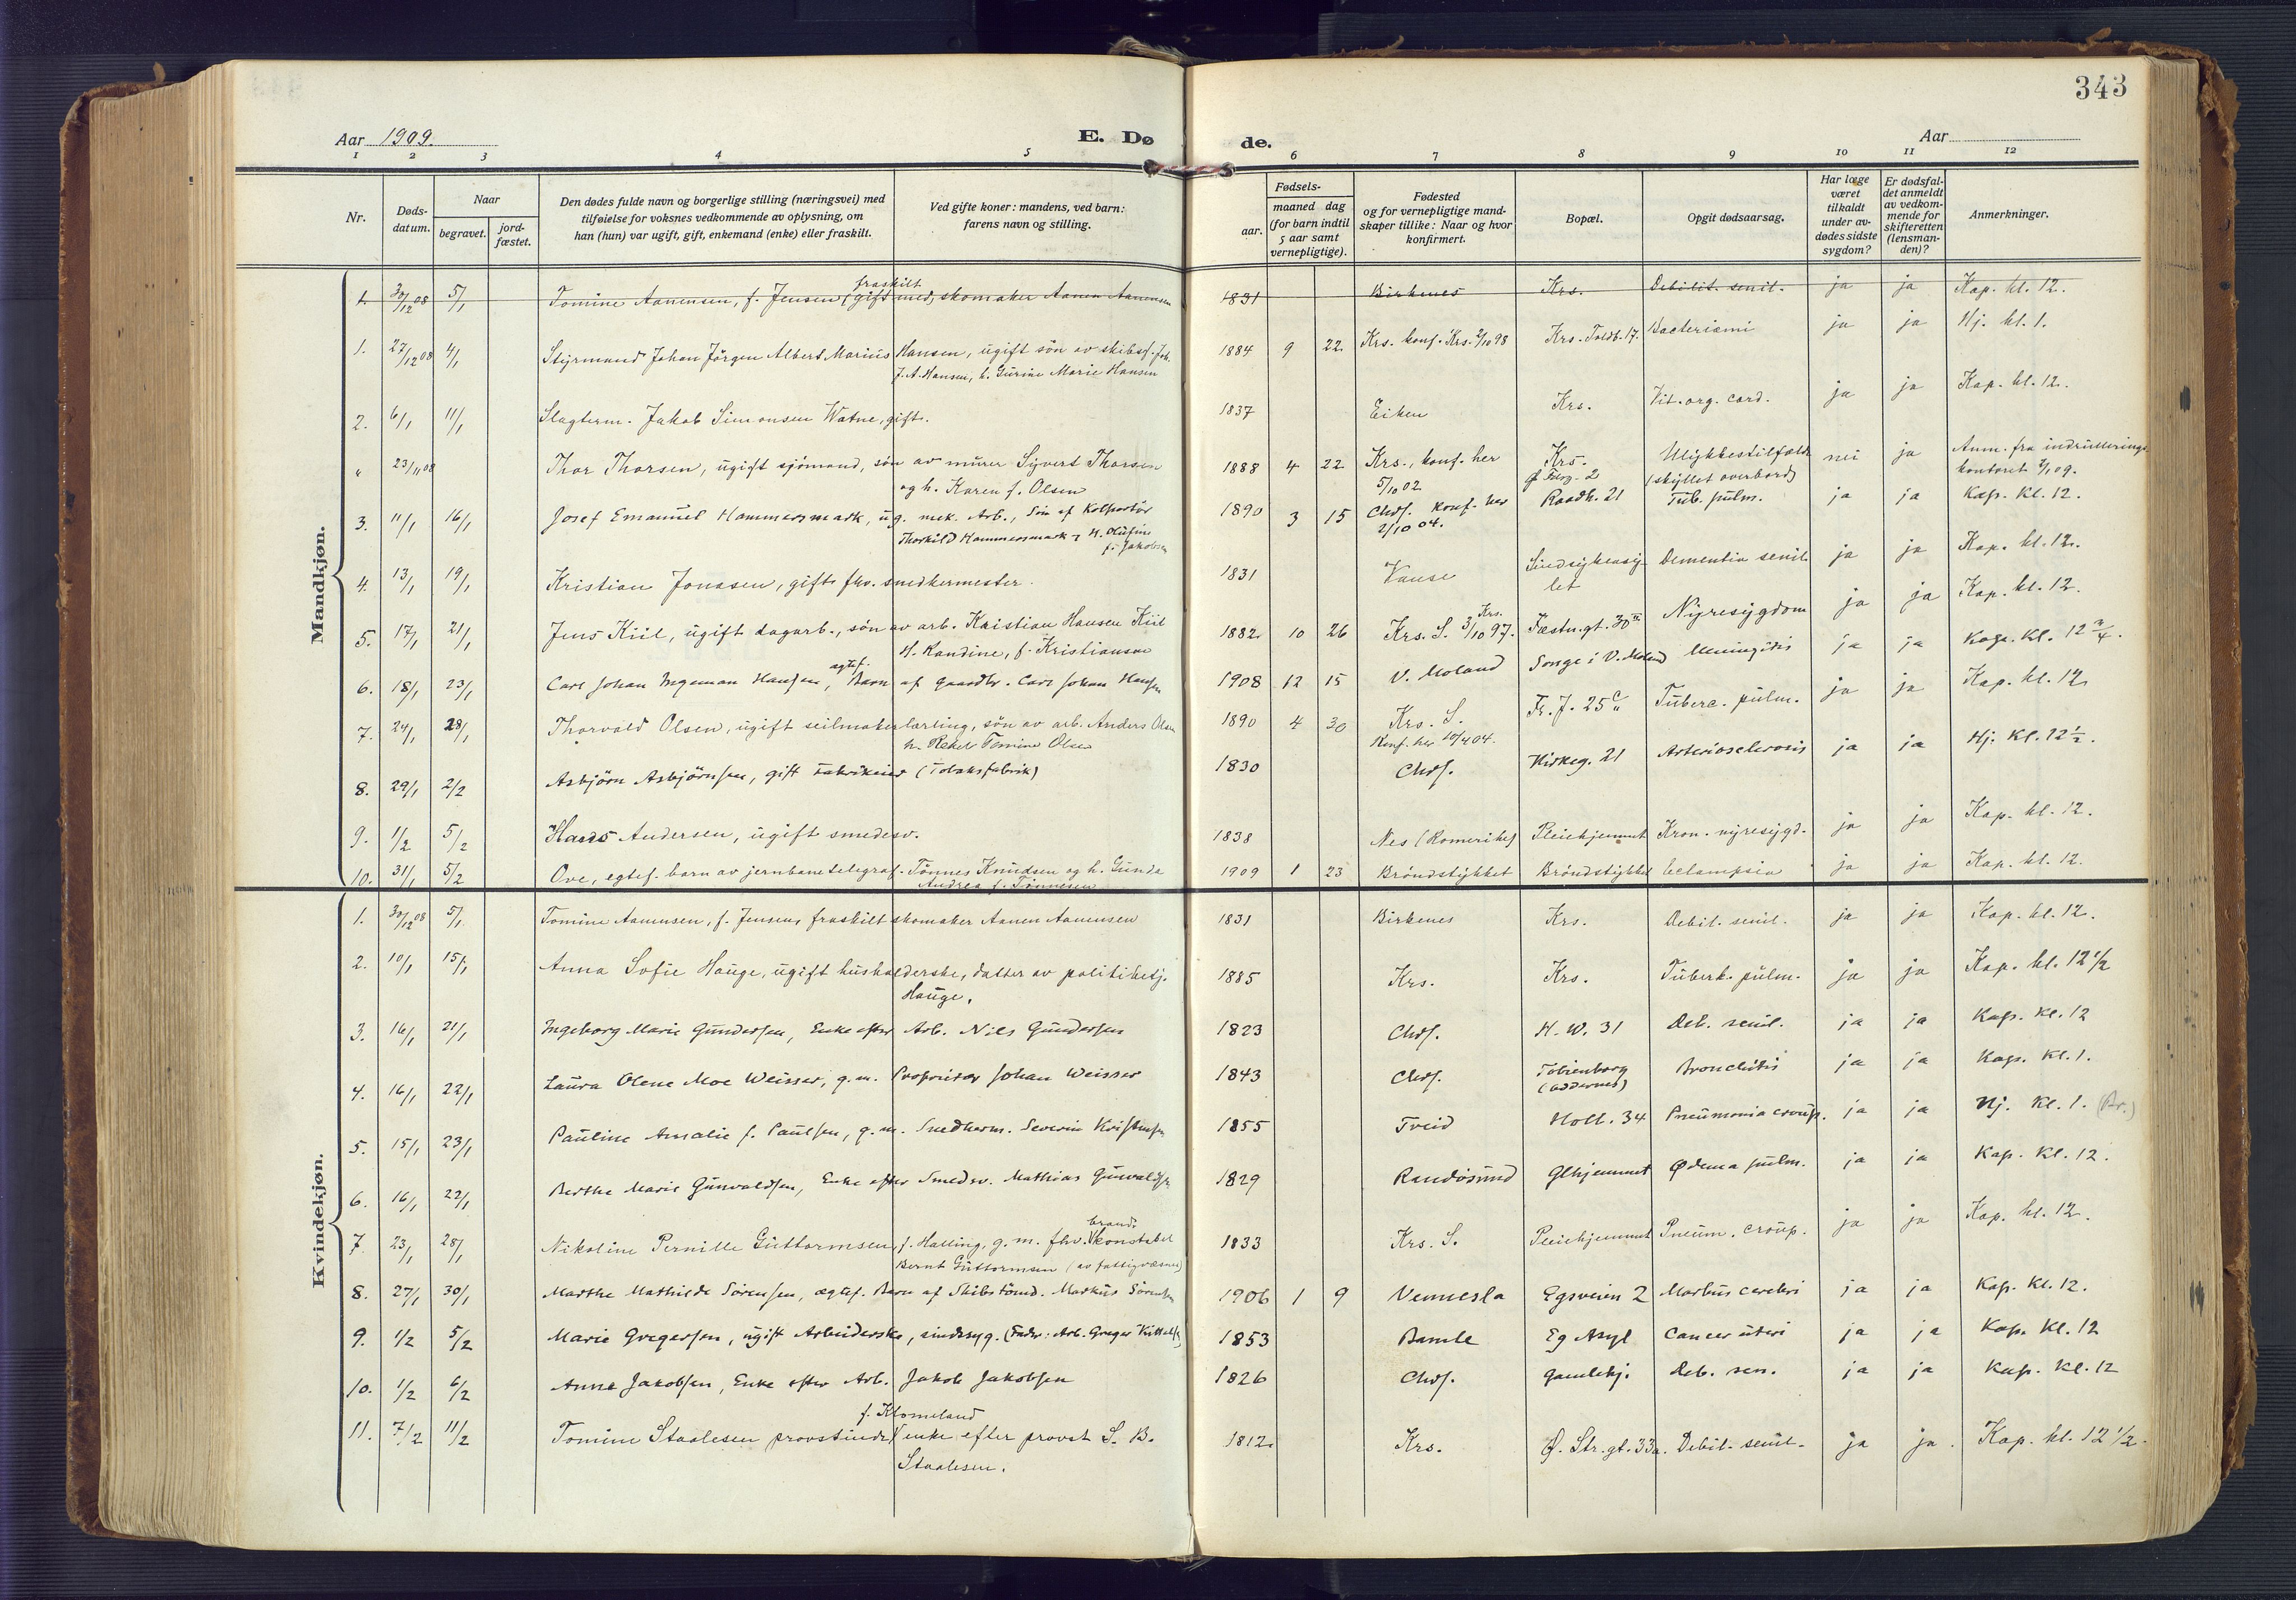 343
Aar 1909.
E. Dø
de.
Aar
1 2 3 4 5 6 7 8 9 10 11 12
Nr.
Døds-
datum.
Naar
begravet.
jord-
fæstet.
Den dødes fulde navn og borgerlige stilling (næringsvei) med
tilføielse for voksnes vedkommende av oplysning, om
han (hun) var ugift, gift, enkemand (enke) eller fraskilt.
Ved gifte koner: mandens, ved barn:
farens navn og stilling.
Fødsels-
aar.
maaned dag
(for barn indtil
5 aar samt
vernepligtige).
Fødested
og for vernepligtige mand-
skaper tillike: Naar og hvor
konfirmert.
Bopæl.
Opgit dødsaarsag.
Har læge
været
tilkaldt
under av-
dødes sidste
sygdom?
Er dødsfal-
det anmeldt
av vedkom-
mende for
skifteretten
(lensman-
den)?
Anmerkninger.
Mandkjøn.
fraskilt
1. 30/12 08 5/1 Tomine Aanensen, f. Jensen, (gift med, skomaker Aanen Aanensen 1831 Birkenes Krs. Debilit. senil. ja ja Kap. kl. 12.
1. 27/12 08 4/1 Styrmand Johan Jörgen Albert Marius Hansen, ugift sön av skibsf. Joh. 1884 9 22 Krs. konf. Krs. 2/10 98 Krs. Toldb. 17. Bacteriemi ja ja Hj. kl. 1.
J. A. Hansen, h. Gurine Marie Hansen
2. 6/1 11/1 Slagterm. Jakob Simonsen Watne, gift. 1837 Eiken Krs. Vit. org. cord. ja ja Kap. kl. 12.
" 23/11 08 Thor Thorsen, ugift sjömand, sön av murer Syvert Thorsen 1888 4 22 Krs., konf. her Krs. Ulykkestilfælde nei ja Anm. fra indrullerings
og h. Karen f. Olsen 5/10 02 (skyllet overbord) kontoret
3. 11/1 16/1 Josef Emanuel Hammersmark, ug. mek. Arb., Sön af Kolportör 1890 3 15 Chrs. Konf. her Raadh. 21 Tub. pulm. ja ja Kap. kl. 12.
Thorkild Hammersmark & H. Olufine 2/10 04.
f. Jakobsen
4. 13/1 19/1 Kristian Jonasen, gift fhv. snedkermester. 1831 Vanse Sindsykeasy- Dementia senil. ja ja Kap. kl. 12.
let
5. 17/1 21/1 Jens Kiil, ugift dagarb., sön av arb. Kristian Hansen Kiil 1882 10 26 Krs. S. 3/10 97. Krs. Fæstn.gt. 30 Nyresygdom ja ja Kap. kl. 12.
H. Randine, f. Kristiansen
ægtef.
6. 18/1 23/1 Carl Johan Ingeman Hansen, Barn af gaardbr. Carl Johan Hansen 1908 12 15 V. Moland Songe i V. Moland Meningitis ja ja Kap. Kl. 12 3/4.
7. 24/1 28/1 Thorvald Olsen, ugift seilmakerlærling, sön av arb. Anders Olsen 1890 4 30 Krs. S. Fr. J. 25 c Tuberc. pulm. ja ja Kap. kl. 12
h. Rakel Tomine Olsen Konf. her 10/4 04.
8. 29/1 2/2 Asbjörn Asbjörnsen, gift Fabrikeier (Tobaksfabrik) 1830 Chrs. Kirkeg. 21 Arteriosclerosis ja ja Hj. Kl. 12 1/2.
9. 1/2 5/2 Hans Andersen, ugift smedesv. 1838 Nes (Romerike) Pleiehjemmet Kron. nyresygd. ja ja Kap. kl. 12.
10. 31/1 5/2 Ove, egtef. barn av jernbanetelegraf. Tönnes Knudsen og h. Gunda 1909 1 23 Bröndstykket Bröndstykket eclampsia ja ja Kap. kl. 12.
Andrea f. Tönnesen
Kvindekjøn.
1. 30/12 08 5/1 Tomine Aanensen, f. Jensen, fraskilt skomaker Aanen Aanensen 1831 Birkenes Krs. Debil. senil. ja ja Kap. kl. 12.
2. 10/1 15/1 Anna Sofie Hauge, ugift husholderske, datter av politibetj. 1885 Krs. Krs. Tuberk. pulm. ja ja Kap. kl. 12 1/2
Hauge.
3. 16/1 21/1 Ingeborg Marie Gundersen, Enke efter Arb. Nils Gundersen 1823 Chrs. H. W. 31 Deb. senil. ja ja Kap. Kl. 12
4. 16/1 22/1 Laura Olene Moe Weisser, g.m. Proprietær Johan Weisser 1843 Chrs. Tobienborg Bronchitis ja ja Kap. Kl. 1.
(Oddernes)
5. 15/1 23/1 Pauline Amalie f. Paulsen, g.m. Snedkerm. Severin Kristensen 1855 Tveid Holl. 34 Pneumonia croup. ja ja Hj. Kl. 1. (Br.)
6. 16/1 22/1 Berthe Marie Gunvaldsen, Enke efter Smedsv. Mathias Gunvaldsen 1829 Randösund Glhjemmet Ødema pulm. ja ja Kap. Kl. 12.
brand-
7. 23/1 28/1 Nikoline Pernille Guttormsen, f. Halling, g.m. fhv. konstabel 1833 Krs. S. Pleiehjemmet Pneum. croup. ja ja Kap. kl. 12.
Bernt Guttormsen (av fattigvæsnet)
8. 27/1 30/1 Marthe Mathilde Sörensen, ægtef. Barn af Skibstömd. Markus Sörensen 1906 1 9 Vennesla Egsveien 2 Morbus cerebri ja ja Kap. Kl. 12.
9. 1/2 5/2 Marie Gregersen, ugift Arbeiderske, sindssyg. (Fader: Arb. Greger Kittelsen) 1853 Bamle Eg Asyl Cancer uteri ja ja Kap. Kl. 12
10. 1/2 6/2 Anne Jakobsen, Enke efter Arb. Jakob Jakobsen 1826 Chrs. Gamlehj. Deb. sen. ja ja Kap. Kl. 12
f. Klomeland
11. 7/2 11/2 Tomine Staalesen provstinde, enke efter provst S. B. 1812. Krs. Ø. Str.gt. 33a. Debil. senil. ja ja. Kap. kl. 12 1/2.
Staalesen.